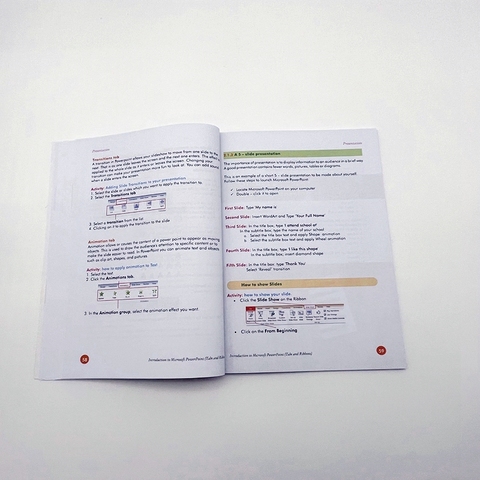 Presentation
Transitions tab
A transition in Powerpoint allows your slideshow to move from one slide to the
next. That is as one slide leaves the screen and the next one enters. The effect is
applied to the whole slide as it enters or leaves the screen. Changing your
transition can make your presentation more fun to look at. You can add sound
when a slide enters the screen.
Activity: Adding Slide Transitions in your presentation.
1 Select the slide or slides which you want to apply the transition to
2 Select the Transitions tab
3 Select a transition from the list
4 Clicking on it apply the transition to the slide
Animation tab
Animation allows or causes the content of a power point to appear as
This is used to draw the audience's attention to specific content or to
make the slide easier to read. In PowerPoint you can animate text and objects
such as clip art, shapes, and pictures
Activity: how to apply animation to Text
1 Select the text
2 Click the Animations tab.
3 In the Animation group, select the animation effect you want
58
Introduction to Microsoft PowerPoint (Tabs and
Presentation
A 5 - slide presentation
The importance of presentation is to display information to an audience in a brief way.
A good presentation contains fewer words, pictures, tables or diagrams.
This is an example of a short 5 - slide presentation to be made about yourself.
Follow these steps to launch Microsoft PowerPoint:
✓ Locate Microsoft PowerPoint on your computer
✓ Double - click it to open
First Slide: Type 'My name is
Second Slide: Insert WordArt and Type 'Your Full Name'
Third Slide: In the title box, type 'I attend school at
In the subtitle box, type the name of your school
a. Select the title box text and apply Shape animation
b. Select the subtitle box text and apply Wheel animation
Fourth Slide: In the title box, type 'I like this shape
In the subtitle box, insert diamond shape
Fifth Slide: In the title box, type 'Thank You'
Select 'Reveal' transition
How to show Slides
Activity: how to show your slide
• Click the Slide Show on the Ribbon
• Click on the From Beginning
Introduction to Microsoft PowerPoint (Tabs and Ribbons)
59